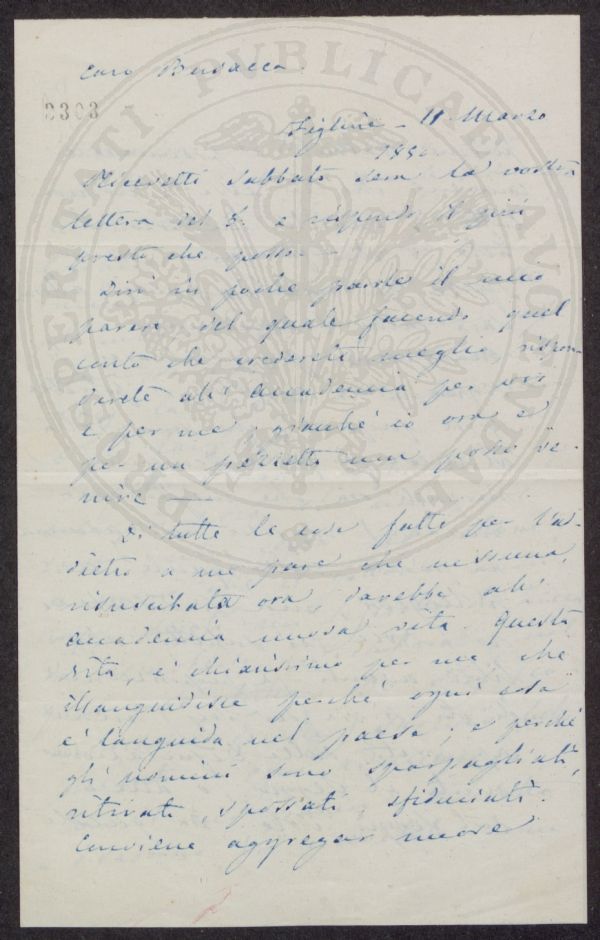 PROSPERITATI PUBLICAE AVGENDAE
Caro Busacca
3303
Figline - 11 Marzo
185
Ricevetti sabbato sera la vostra
lettera del 8. e rispondo il più
presto che posso. -
Dirò in poche parole il mio
parere del quale facendo quel
conto che crederete meglio rispon-
derete all' accademia per voi
e per me, giacché io ora e
per un pezzetto non posso ve-
nire —
Di tutte le cose fatte per l'ad-
dietro a me pare che nessuna,
risuscitata ora, darebbe all'
accademia nuova vita. Questa
vita, è chiarissimo per me che
illanguidisce perché ogni cosa
è languida nel paese; e perché
gli uomini sono sparpagliati,
ritirati, spossati, sfiduciati.
Conviene aggregar nuove